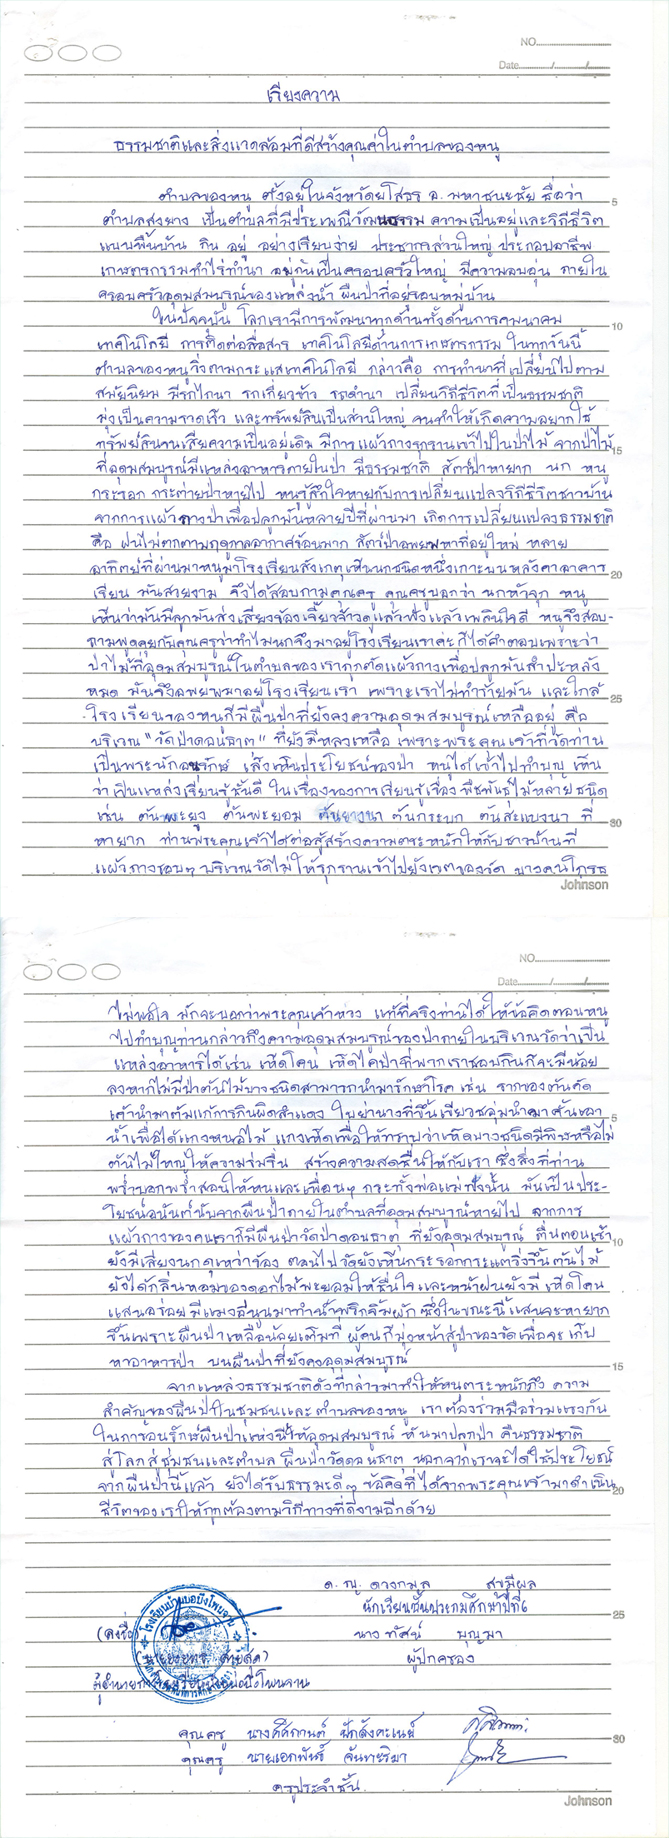 NO.
Date / /
เรียงความ
ธรรมชาติและสิ่งแวดล้อมที่ดีสร้างคุณค่าในตำบลของหนู
ตำบลของหนู ตั้งอยู่ในจังหวัดยโสธร อ. มหาชนะชัย ชื่อว่า
5
ตำบลสงยาง เป็นตำบลที่มีประเพณีวัฒนธรรม ความเป็นอยู่และวิถีชีวิต
แบบพื้นบ้าน กิน อยู่ อย่างเรียบง่าย ประชากรส่วนใหญ่ ประกอบอาชีพ
เกษตรกรรมทำไร่ทำนา อยู่กันเป็นครอบครัวใหญ่ มีความอบอุ่น ภายใน
ครอบครัวอุดมสมบูรณ์ของแหล่งน้ำ ผืนป่าที่อยู่รอบหมู่บ้าน
ในปัจจุบัน โลกเรามีการพัฒนาทุกด้านทั้งด้านการคมนาคม
10
เทคโนโลยี การติดต่อสื่อสาร เทคโนโลยีด้านการเกษตรกรรม ในทุกวันนี้
ตำบลของหนูวิ่งตามกระแสเทคโนโลยี กล่าวคือ การทำนาที่เปลี่ยนไปตาม
สมัยนิยม มีรถไถนา รถเกี่ยวข้าว รถดำนา เปลี่ยนวิถีชีวิตที่เป็นธรรมชาติ
มุ่งเป็นความรวดเร็ว และทรัพย์สินเป็นส่วนใหญ่ จนทำให้เกิดความอยากใช้
ทรัพย์สินจนเสียความเป็นอยู่เดิม มีการแผ้วถางรุกรานเข้าไปในป่าไม้ จากป่าไม้
15
ที่อุดมสมบูรณ์มีแหล่งอาหารภายในป่า มีธรรมชาติ สัตว์ป่าหายาก นก หนู
กระรอก กระต่ายป่าหายไป หนูรู้สึกใจหายกับการเปลี่ยนแปลงวิถีชีวิตชาวบ้าน
จากการแผ้วถางป่าเพื่อปลูกมันหลายปีที่ผ่านมา เกิดการเปลี่ยนแปลงธรรมชาติ
คือ ฝนไม่ตกตามฤดูกาลอากาศร้อนมาก สัตว์ป่าอพยพหาที่อยู่ใหม่ หลาย
อาทิตย์ที่ผ่านมาหนูมาโรงเรียนสังเกตุเห็นนกชนิดหนึ่งเกาะบนหลังคาอาคาร
20
เรียน มันสวยงาม จึงได้สอบถามคุณครู คุณครูบอกว่า นกหัวจุก หนู
เห็นว่ามันมีลูกมันส่งเสียงร้องเจี๊ยวจ๊าวดูแล้วฟังแล้วเพลินใจดี หนูจึงสอบ-
ถามพูดคุยกับคุณครูว่าทำไมนกจึงมาอยู่โรงเรียนเราค่ะก็ได้คำตอบเพราะว่า
ป่าไม้ที่อุดมสมบูรณ์ในตำบลของเราถูกตัดแผ้วถางเพื่อปลูกมันสำปะหลัง
หมด มันจึงอพยพมาอยู่โรงเรียนเรา เพราะเราไม่ทำร้ายมัน และใกล้
25
โรงเรียนของหนูก็มีผืนป่าที่ยังคงความอุดมสมบูรณ์เหลืออยู่ คือ
บริเวณ "วัดป่าดอนธาตุ" ที่ยังมีหลงเหลือ เพราะพระคุณเจ้าที่วัดท่าน
เป็นพระนักอนุรักษ์ เล็งเห็นประโยชน์ของป่า หนูได้เข้าไปทำบุญ เห็น
ว่าเป็นแหล่งเรียนรู้ชั้นดี ในเรื่องของการเรียนรู้เรื่อง พืชพันธุ์ไม้หลายชนิด
เช่น ต้นพะยูง ต้นพะยอม ต้นยางนา ต้นกระบก ต้นสะแบงนา ที่
30
หายาก ท่านพระคุณเจ้าได้ต่อสู้สร้างความตระหนักให้กับชาวบ้านที่
แผ้วถางรอบๆ บริเวณวัดไม่ให้รุกรานเข้าไปยังเขตของวัด บางคนโกรธ
Johnson
NO.
Date / /
ไม่พอใจ มักจะบอกว่าพระคุณเจ้าหวง แท้ที่จริงท่านได้ให้ข้อคิดตอนหนู
ไปทำบุญท่านกล่าวถึงความอุดมสมบูรณ์ของป่าภายในบริเวณวัดว่าเป็น
แหล่งอาหารได้เช่น เห็ดโคน เห็ดไคป่าที่พวกเราชอบกินก็จะมีน้อย
ลงหากไม่มีป่าต้นไม้บางชนิดสามารถนำมารักษาโรค เช่น รากของต้นคัด
เค้านำมาต้มแก้การกินผิดสำแดง ใบย่านางที่ขึ้นเขียวชอุ่มนำมาคั้นเอา
5
น้ำเพื่อใส่แกงหน่อไม้ แกงเห็ดเพื่อให้ทราบว่าเห็ดบางชนิดมีพิษหรือไม่
ต้นไม้ใหญ่ให้ความร่มรื่น สร้างความสดชื่นให้กับเรา ซึ่งสิ่งที่ท่าน
พร่ำบอกพร่ำสอนให้หนูและเพื่อนๆ กระทั่งพ่อแม่ฟังนั้น มันเป็นประ-
โยชน์อนันต์นับจากผืนป่าภายในตำบลที่อุดมสมบูรณ์หายไป จากการ
แผ้วถางของคนเราก็มีผืนป่าวัดป่าดอนธาตุ ที่ยังอุดมสมบูรณ์ ตื่นตอนเช้า
10
ยังมีเสียงนกดุเหว่าร้อง ตอนไปวัดยังเห็นกระรอกกระแตวิ่งขึ้นต้นไม้
ยังได้กลิ่นหอมของดอกไม้พะยอมให้ชื่นใจ และหน้าฝนยังมี เห็ดโคน
แสนอร่อย มีแมงอีนูนมาทำน้ำพริกจิ้มผัก ซึ่งในขณะนี้แสนจะหายาก
ขึ้นเพราะผืนป่าเหลือน้อยเต็มที่ ผู้คนก็มุ่งหน้าสู่ป่าของวัดเพื่อจะเก็บ
หาอาหารป่า บนผืนป่าที่ยังคงอุดมสมบูรณ์
15
จากแหล่งธรรมชาติดังที่กล่าวมาทำให้หนูตระหนักถึง ความ
สำคัญของผืนป่าในชุมชนและตำบลของหนู เราต้องร่วมมือร่วมแรงกัน
ในการอนุรักษ์ผืนป่าแห่งนี้ให้อุดมสมบูรณ์ หันมาปลูกป่า คืนธรรมชาติ
สู่โลกสู่ชุมชนและตำบล ผืนป่าวัดดอนธาตุ นอกจากเราจะได้ใช้ประโยชน์
จากผืนป่านี้แล้ว ยังได้รับธรรมะดีๆ ข้อคิดที่ได้จากพระคุณเจ้ามาดำเนิน
20
ชีวิตของเราให้ถูกต้องตามวิถีทางที่ดีงามอีกด้วย
ด. ญ. ดวงกมล สามีผล
นักเรียนชั้นประถมศึกษาปีที่6
25
(ลงชื่อ)
นาง ทัศน์ บุญมา
ผู้ปกครอง
คุณครู
คุณครู นายเอกพันธ์ จันทะริมา
30
ครูประจำชั้น
Johnson